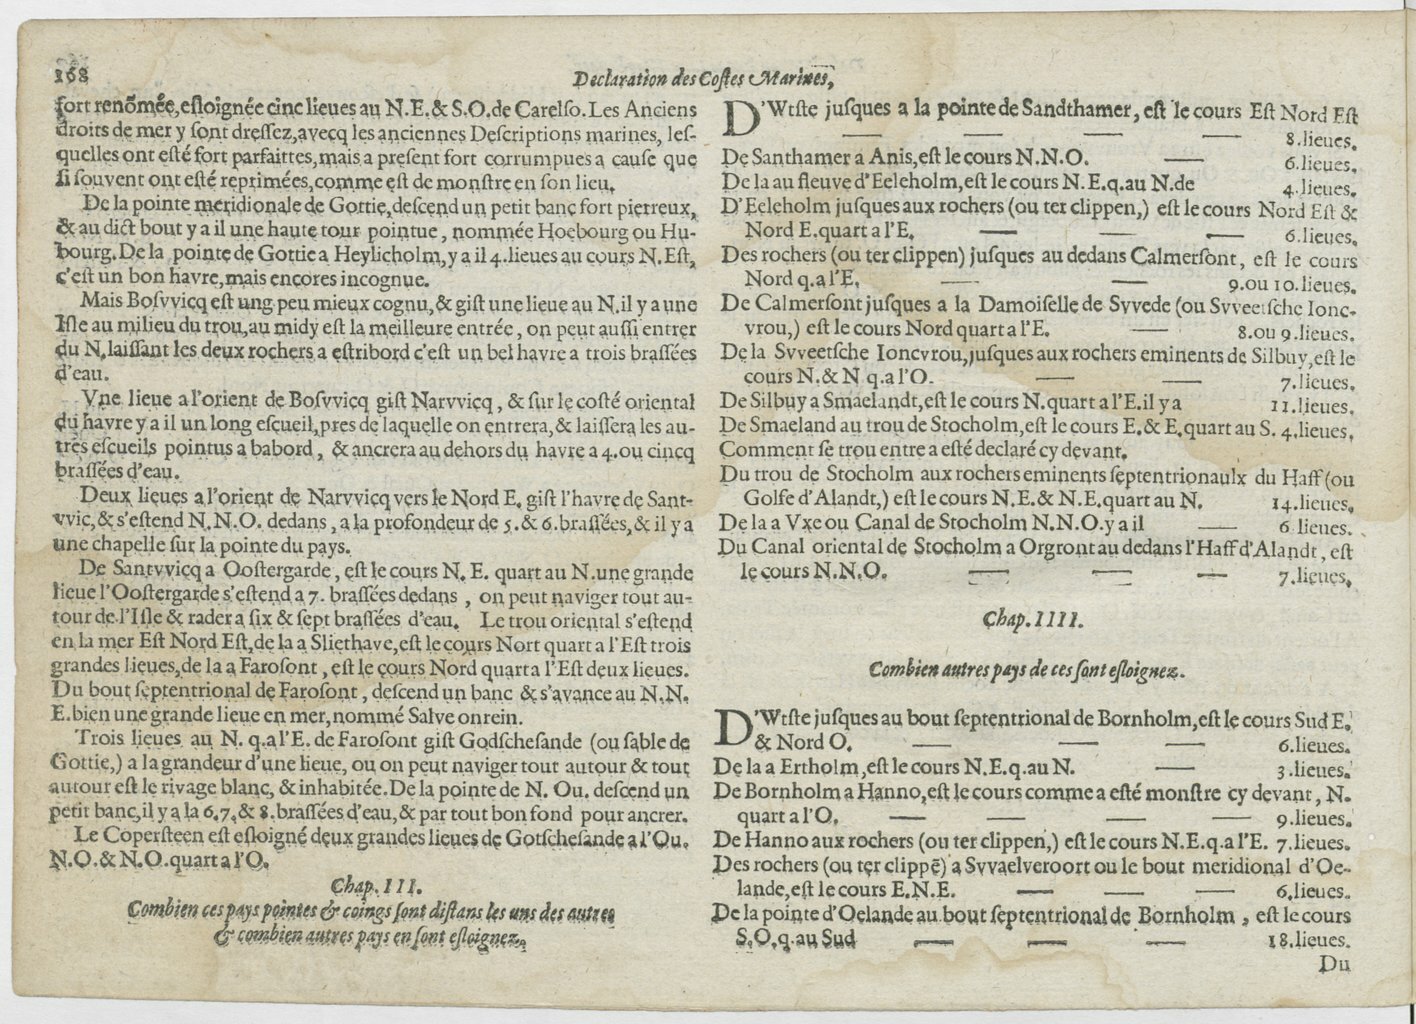 168
Declaration des Costes Marines,
fort renõmée, esloignée cinc lieues au N.E. & S.O. de Carelso. Les Anciens
droits de mer y sont dressez, avecq les anciennes Descriptions marines, les-
quelles ont esté fort parfaittes, mais a present fort corrumpues a cause que
si souvent ont esté reprimées, comme est de monstre en son lieu.
De la pointe meridionale de Gottie, descend un petit banc fort pierreux,
& au dict bout y a il une haute tour pointue, nommée Hoebourg ou Hu-
bourg. De la pointe de Gottie a Heylicholm, y a il 4. lieues au cours N. Est,
c'est un bon havre, mais encores incognue.
Mais Bosvvicq est ung peu mieux cognu, & gist une lieue au N. il y a une
Isle au milieu du trou, au midy est la meilleure entrée, on peut aussi entrer
du N. laissant les deux rochers a estribord c'est un bel havre a trois brassées
d'eau.
Vne lieue a l'orient de Bosvvicq gist Narvvicq, & sur le costé oriental
du havre y a il un long escueil, pres de laquelle on entrera, & laissera les au-
tres escueils pointus a babord, & ancrera au dehors du havre a 4. ou cincq
brassées d'eau.
Deux lieues a l'orient de Narvvicq vers le Nord E. gist l'havre de Sant-
vvic, & s'estend N.N.O. dedans, a la profondeur de 5. & 6. brassées, & il y a
une chapelle sur la pointe du pays.
De Santvvicq a Oostergarde, est le cours N. E. quart au N. une grande
lieue l'Oostergarde s'estend a 7. brassées dedans, on peut naviger tout au-
tour de l'Isle & rader a six & sept brassées d'eau. Le trou oriental s'estend
en la mer Est Nord Est, de la a Sliethave, est le cours Nort quart a l'Est trois
grandes lieues, de la a Farosont, est le cours Nord quart a l'Est deux lieues.
Du bout septentrional de Farosont, descend un banc & s'avance au N.N.
E. bien une grande lieue en mer, nommé Salve onrein.
Trois lieues au N. q. a l'E. de Farosont gist Godschesande (ou sable de
Gottie,) a la grandeur d'une lieue, ou on peut naviger tout autour & tout
autour est le rivage blanc, & inhabitée. De la pointe de N. Ou. descend un
petit banc, il y a la 6.7. & 8. brassées d'eau, & par tout bon fond pour ancrer.
Le Copersteen est esloigné deux grandes lieues de Gotschesande a l'Ou.
N.O. & N.O. quart a l'O.
Chap. III.
Combien ces pays pointes & coings sont distans les uns des autres
& combien autres pays en sont esloignez.
D'Wtste jusques a la pointe de Sandthamer, est le cours Est Nord Est
8. lieues.
De Santhamer a Anis, est le cours N.N.O. 6. lieues.
De la au fleuve d'Eeleholm, est le cours N.E.q. au N. de 4. lieues.
D'Eeleholm jusques aux rochers (ou ter clippen,) est le cours Nord Est &
Nord E. quart a l'E. 6. lieues.
Des rochers (ou ter clippen) jusques au dedans Calmersont, est le cours
Nord q. a l'E. 9. ou 10. lieues.
De Calmersont jusques a la Damoiselle de Svvede (ou Svveetsche Ionc-
vrou,) est le cours Nord quart a l'E. 8. ou 9. lieues.
De la Svveetsche Ioncvrou, jusques aux rochers eminents de Silbuy, est le
cours N. & N q. a l'O. 7. lieues.
De Silbuy a Smaelandt, est le cours N. quart a l'E. il y a 11. lieues.
De Smaeland au trou de Stocholm, est le cours E. & E. quart au S. 4. lieues.
Comment se trou entre a esté declaré cy devant.
Du trou de Stocholm aux rochers eminents septentrionaulx du Haff (ou
Golfe d'Alandt,) est le cours N.E. & N.E. quart au N. 14. lieues.
De la a Vxe ou Canal de Stocholm N.N.O. y a il 6 lieues.
Du Canal oriental de Stocholm a Orgront au dedans l'Haff d'Alandt, est
le cours N.N.O. 7. lieues.
Chap. IIII.
Combien autres pays de ces sont esloignez.
D'Wtste jusques au bout septentrional de Bornholm, est le cours Sud E.
& Nord O. 6. lieues.
De la a Ertholm, est le cours N.E.q. au N. 3. lieues.
De Bornholm a Hanno, est le cours comme a esté monstre cy devant, N.
quart a l'O. 9. lieues.
De Hanno aux rochers (ou ter clippen,) est le cours N.E.q. a l'E. 7. lieues.
Des rochers (ou ter clippẽ) a Svvaelveroort ou le bout meridional d'Oe-
lande, est le cours E.N.E. 6. lieues.
De la pointe d'Oelande au bout septentrional de Bornholm, est le cours
S.O.q. au Sud 18. lieues.
Du